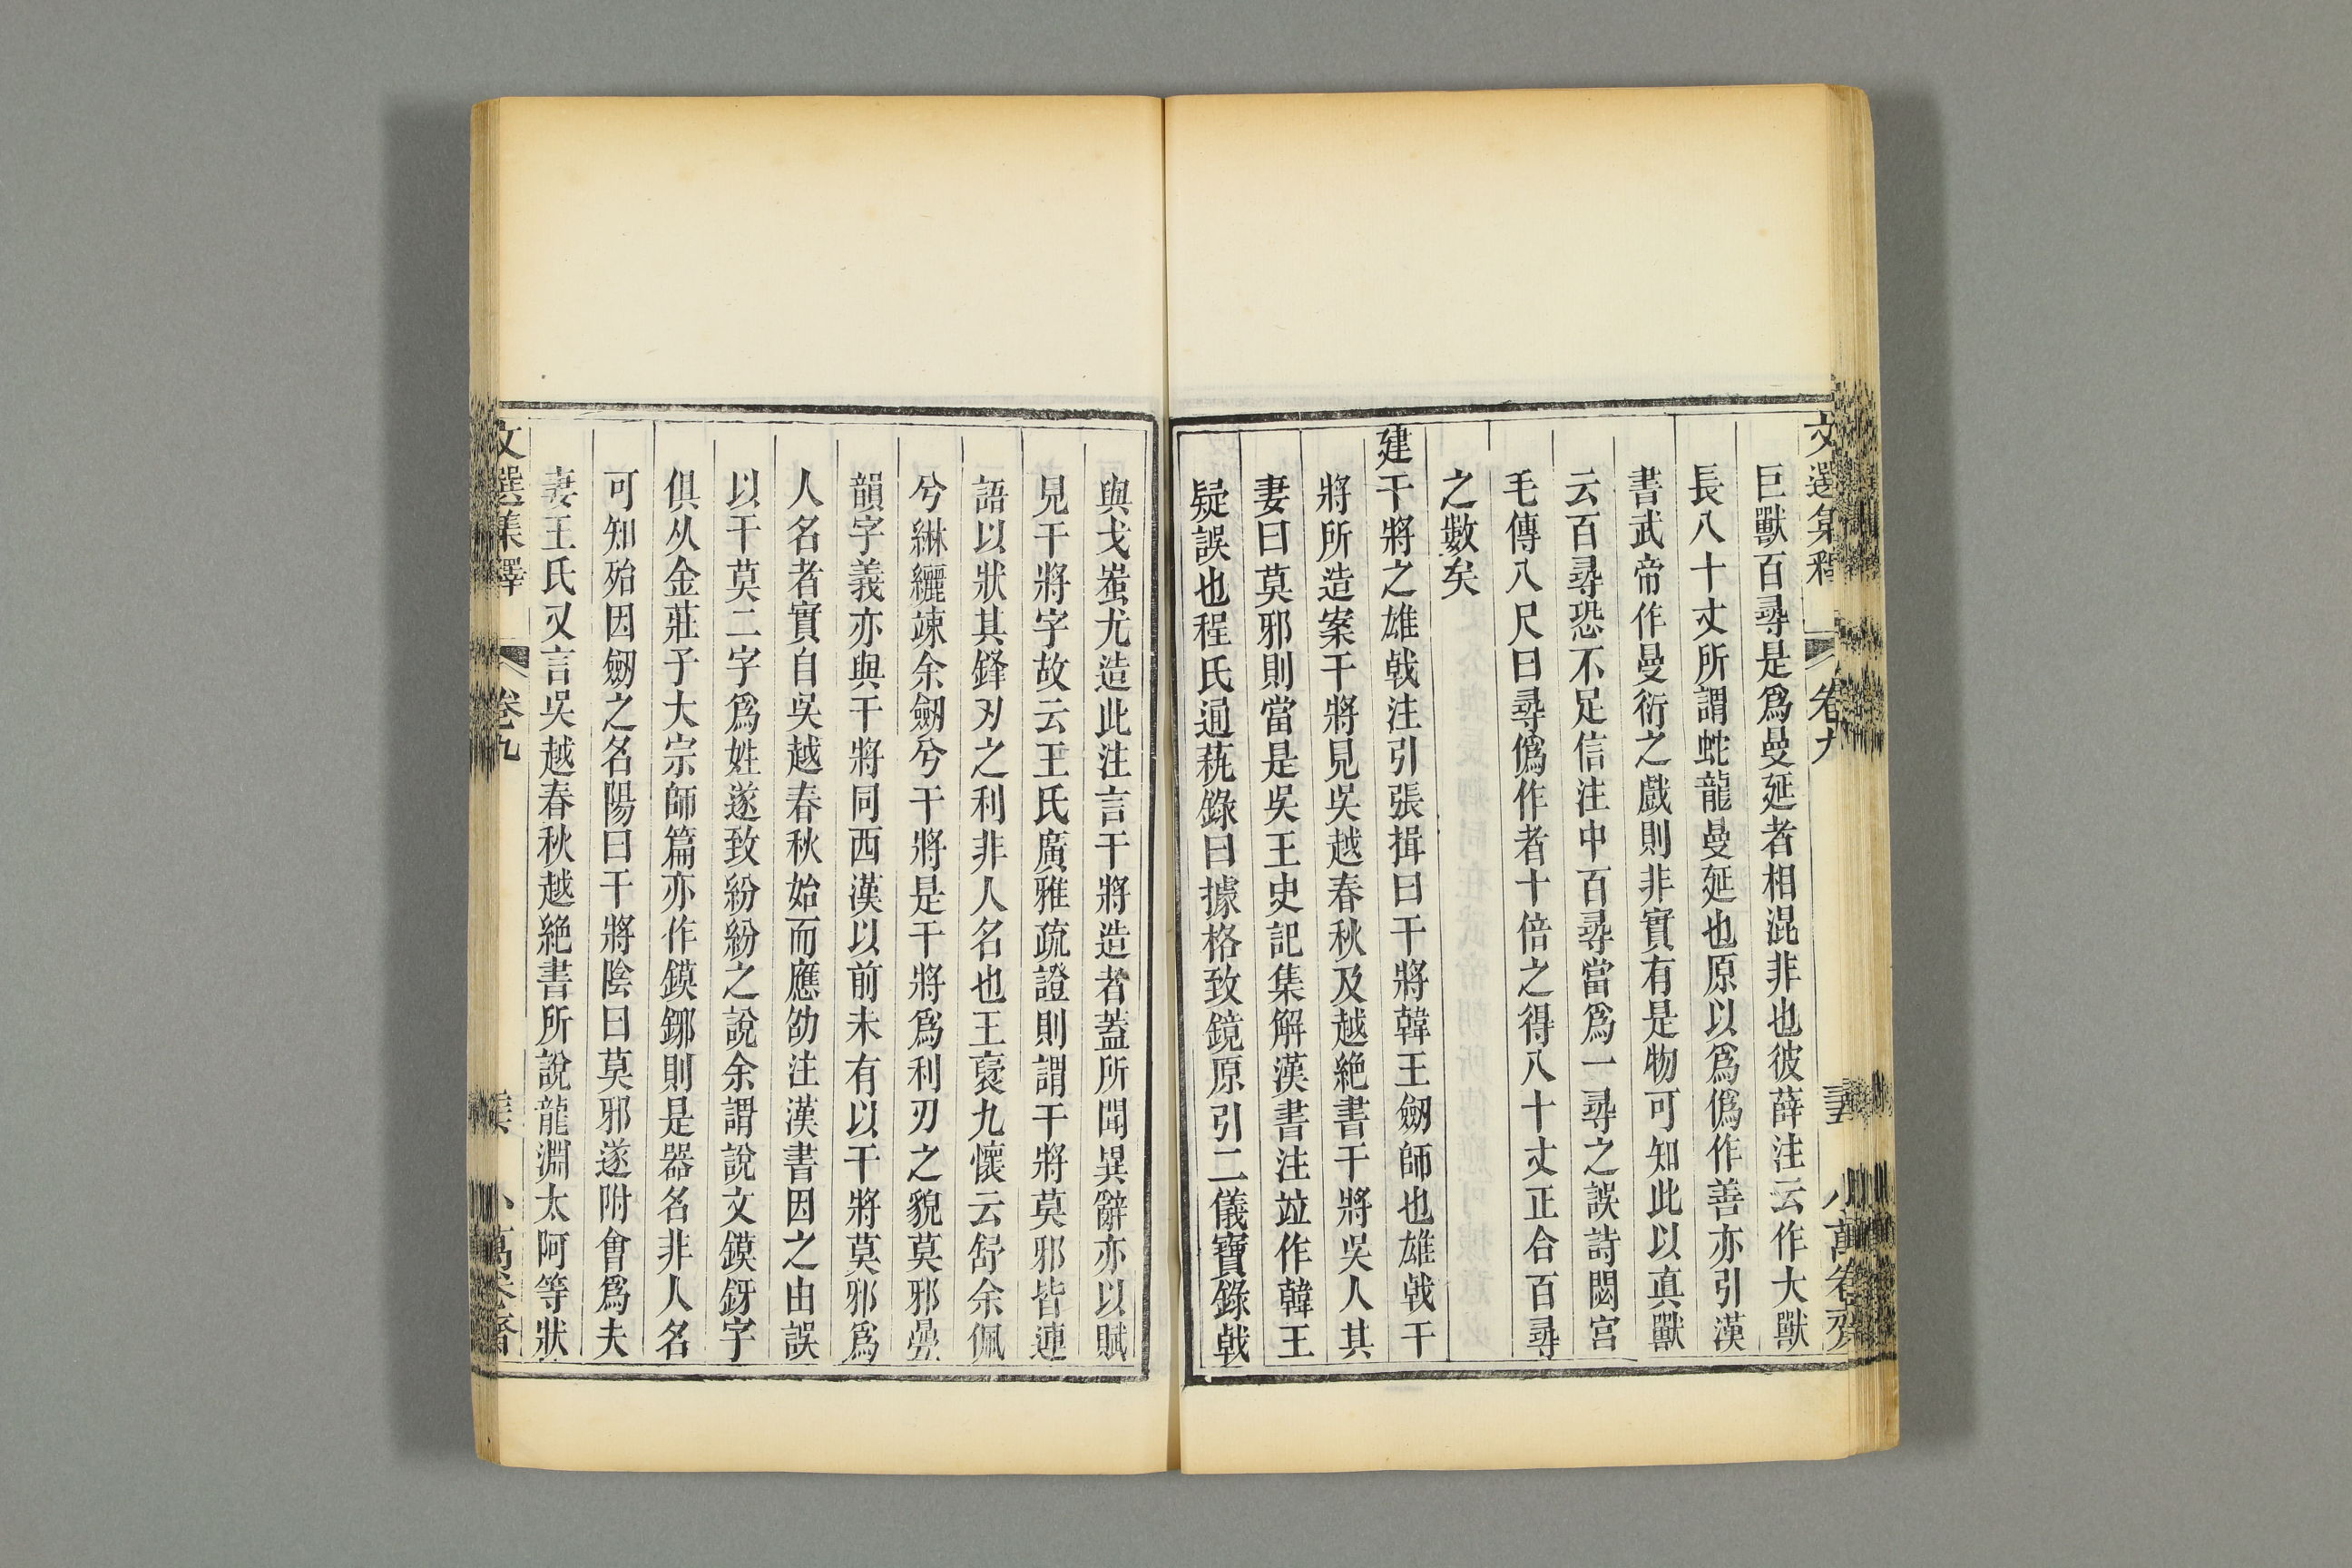 文選集釋 卷九 小萬卷齋
巨獸百尋是爲曼延者相混非也彼薛注云作大獸
長八十丈所謂蛇龍曼延也原以爲僞作善亦引漢
書武帝作曼衍之戲則非實有是物可知此以真獸
云百尋恐不足信注中百尋當爲一尋之誤詩閟宮
毛傳八尺曰尋僞作者十倍之得八十丈正合百尋
之數矣
建干將之雄戟注引張揖曰干將韓王劒師也雄戟干
將所造案干將見吳越春秋及越絶書干將吳人其
妻曰莫邪則當是吳王史記集解漢書注竝作韓王
疑誤也程氏通蓺錄曰據格致鏡原引二儀寶錄戟
與戈蚩尤造此注言干將造者蓋所聞異辭亦以賦
見干將字故云王氏廣雅疏證則謂干將莫邪皆連
語以狀其鋒刃之利非人名也王襃九懷云舒余佩
兮綝纚竦余劒兮干將是干將爲利刃之貌莫邪疊
韻字義亦與干將同西漢以前未有以干將莫邪爲
人名者實自吳越春秋始而應劭注漢書因之由誤
以干莫二字爲姓遂致紛紛之說余謂說文鏌釾字
俱从金莊子大宗師篇亦作鏌鋣則是器名非人名
可知殆因劒之名陽曰干將陰曰莫邪遂附會爲夫
妻王氏又言吳越春秋越絶書所說龍淵太阿等狀
文選集釋 卷九 小萬卷齋